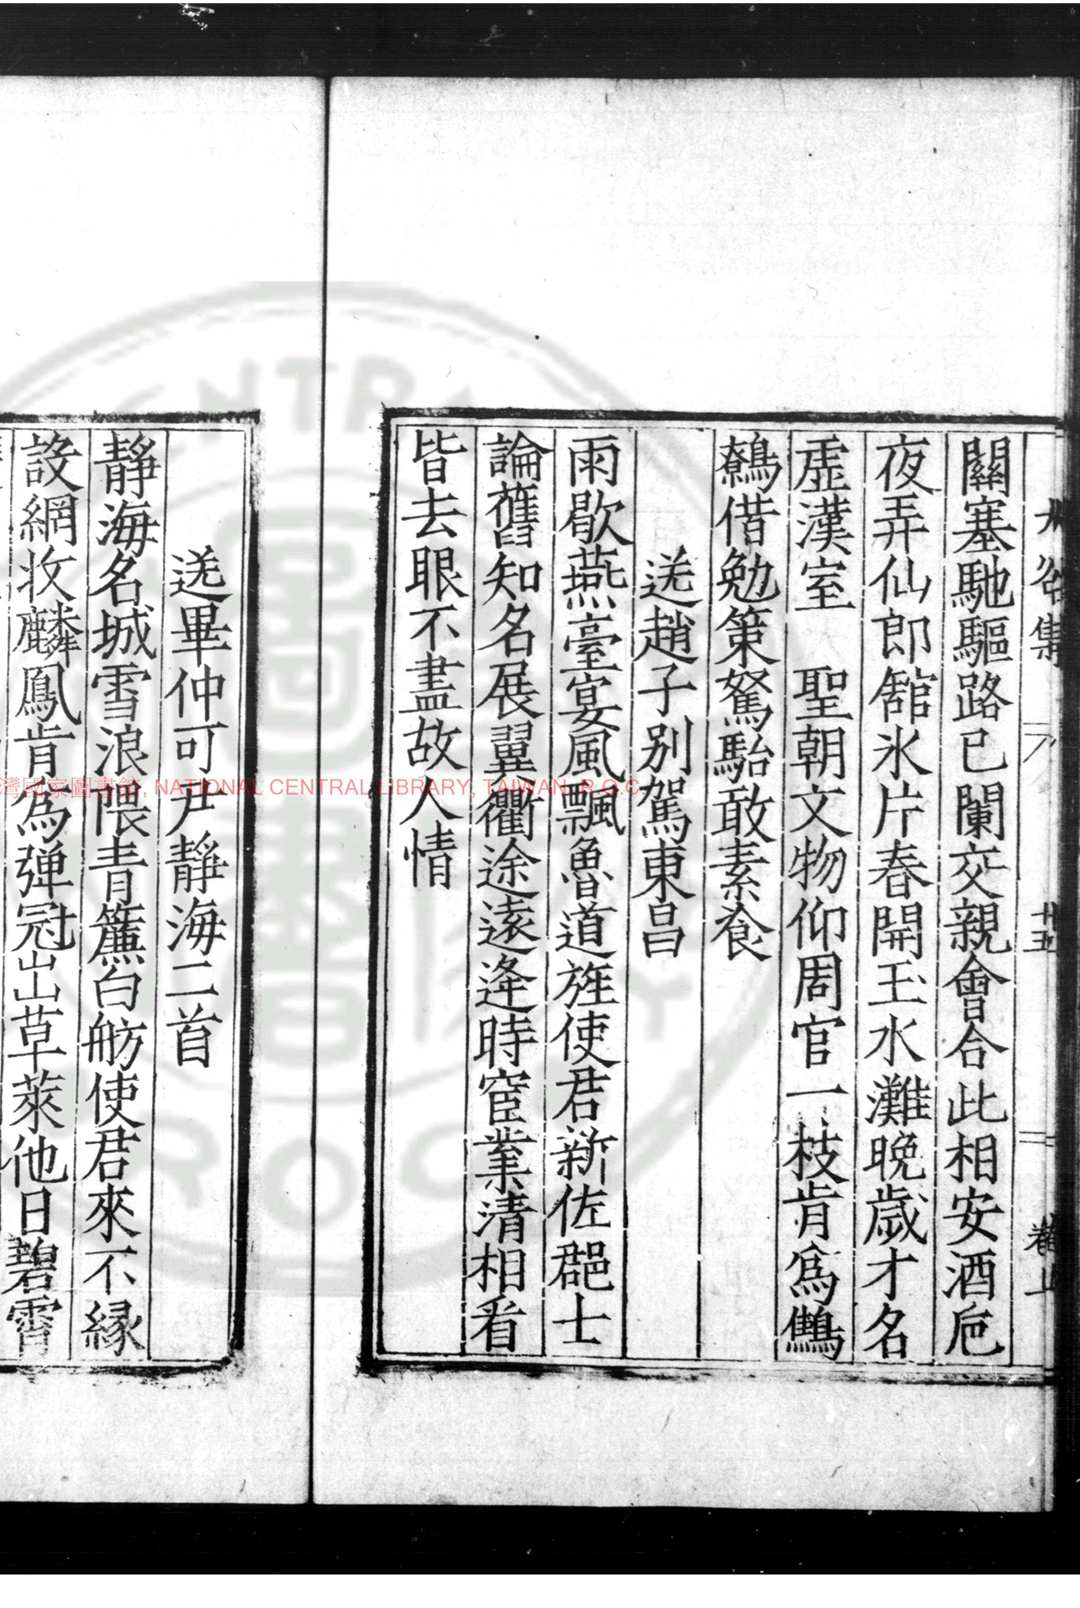 集
廿五
卷上
關塞馳驅路已闌交親會合此相安酒巵
夜弄仙郎舘氷片春開玉水灘晚歲才名
虛漢室　聖朝文物仰周官一枝肯爲鷦
鷯借勉策駑駘敢素飡
送趙子別駕東昌
雨歇燕臺宴風飄魯道旌使君新佐郡士
論舊知名展翼衢途逺逢時宦業清相看
皆去眼不盡故人情
送畢仲可尹靜海二首
靜海名城雪浪隈青簾白舫使君來不縁
設網收麟鳳肯爲彈冠出草萊他日碧霄
灣國家圖書館, NATIONAL CENTRAL LIBRARY, TAIWAN, R.O.C